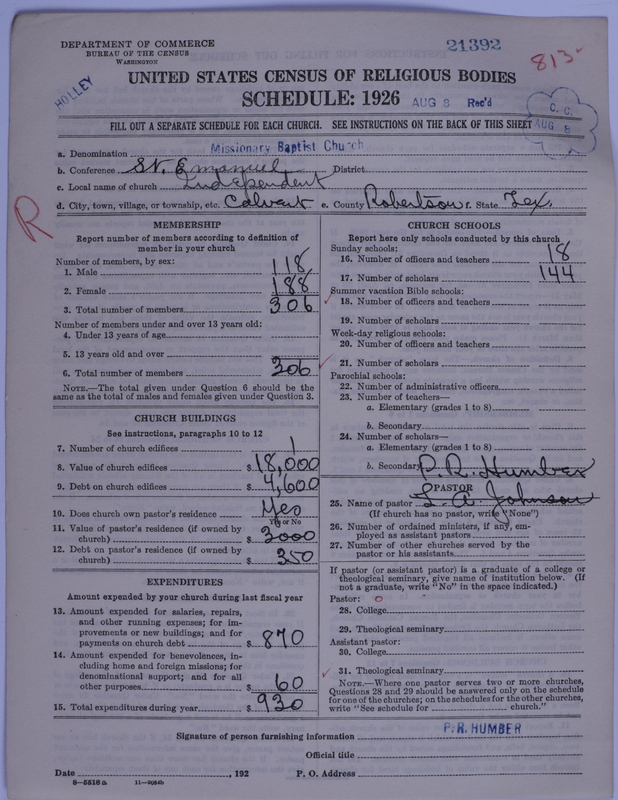 DEPARTMENT OF COMMERCE
BUREAU OF THE CENSUS
WASHINGTON
21392
813-
HOLLEY
UNITED STATES CENSUS OF RELIGIOUS BODIES
SCHEDULE: 1926
AUG 8 Rec'd
C. C.
AUG 8
FILL OUT A SEPARATE SCHEDULE FOR EACH CHURCH. SEE INSTRUCTIONS ON THE BACK OF THIS SHEET
a. Denomination Missionary Baptist Church
b. Conference St. Emanuel District
c. Local name of church Independent
d. City, town, village, or township, etc. Calvert e. County Robertson f. State Tex.
R
MEMBERSHIP
Report number of members according to definition of
member in your church
Number of members, by sex:
1. Male 118
2. Female 188
3. Total number of members 306
Number of members under and over 13 years old:
4. Under 13 years of age
5. 13 years old and over
6. Total number of members 306
NOTE.—The total given under Question 6 should be
same as the total of males and females given under Question 3.
CHURCH BUILDINGS
See instructions, paragraphs 10 to 12
7. Number of church edifices 1
8. Value of church edifices $ 18,000
9. Debt on church edifices $ 4,600
10. Does church own pastor's residence Yes
Yes or No
11. Value of pastor's residence (if owned by
church) $ 3000
12. Debt on pastor's residence (if owned by
church) $ 350
EXPENDITURES
Amount expended by your church during last fiscal year
13. Amount expended for salaries, repairs,
and other running expenses; for im-
provements or new buildings; and for
payments on church debt $ 870
14. Amount expended for benevolences, in-
cluding home and foreign missions; for
denominational support; and for all
other purposes $ 60
15. Total expenditures during year $ 930
CHURCH SCHOOLS
Report here only schools conducted by this church
Sunday schools:
16. Number of officers and teachers 18
17. Number of scholars 144
Summer vacation Bible schools:
18. Number of officers and teachers
19. Number of scholars
Week-day religious schools:
20. Number of officers and teachers
21. Number of scholars
Parochial schools:
22. Number of administrative officers
23. Number of teachers—
a. Elementary (grades 1 to 8)
b. Secondary
24. Number of scholars—
a. Elementary (grades 1 to 8)
b. Secondary P. R. Humber
PASTOR
25. Name of pastor L. A. Johnson
(If church has no pastor, write "None")
26. Number of ordained ministers, if any, em-
ployed as assistant pastors
27. Number of other churches served by the
pastor or his assistants
If pastor (or assistant pastor) is a graduate of a college or
theological seminary, give name of institution below. (If
not a graduate, write "No" in the space indicated.)
Pastor: 0
28. College
29. Theological seminary
Assistant pastor:
30. College
31. Theological seminary
NOTE.—Where one pastor serves two or more churches,
Questions 28 and 29 should be answered only on the schedule
for one of the churches; on the schedules for the other churches,
write "See schedule for church."
Signature of person furnishing information P. R. HUMBER
Official title
Date , 192 P. O. Address
8—5518 a 11—9084b